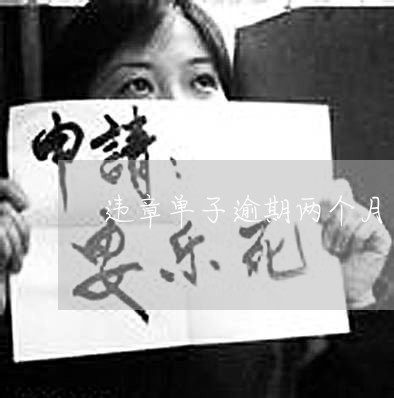 申請：
违章单子逾期两个月
安乐死